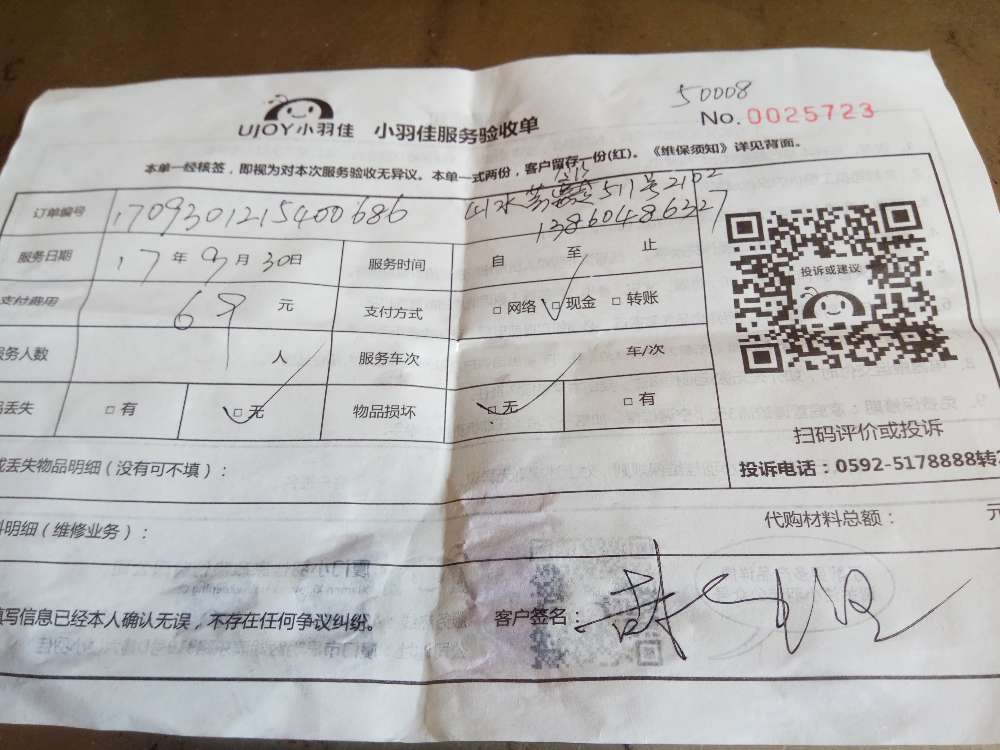 50008
UJOY小羽佳 小羽佳服务验收单 No. 0025723
本单一经核签，即视为对本次服务验收无异议。本单一式两份，客户留存一份(红)。《维保须知》详见背面。
订单编号 1709301215400686 511号2102
13860486327
服务日期 17年9月30日 服务时间 自 至 止
支付费用 69 元 支付方式 □网络 □现金 □转账
服务人数 1 人 服务车次 车/次
丢失 □有 □无 物品损坏 □无 □有
投诉或建议
扫码评价或投诉
投诉电话：0592-5178888转
丢失物品明细（没有可不填）：
明细（维修业务）： 代购材料总额： 元
填写信息已经本人确认无误，不存在任何争议纠纷。 客户签名：